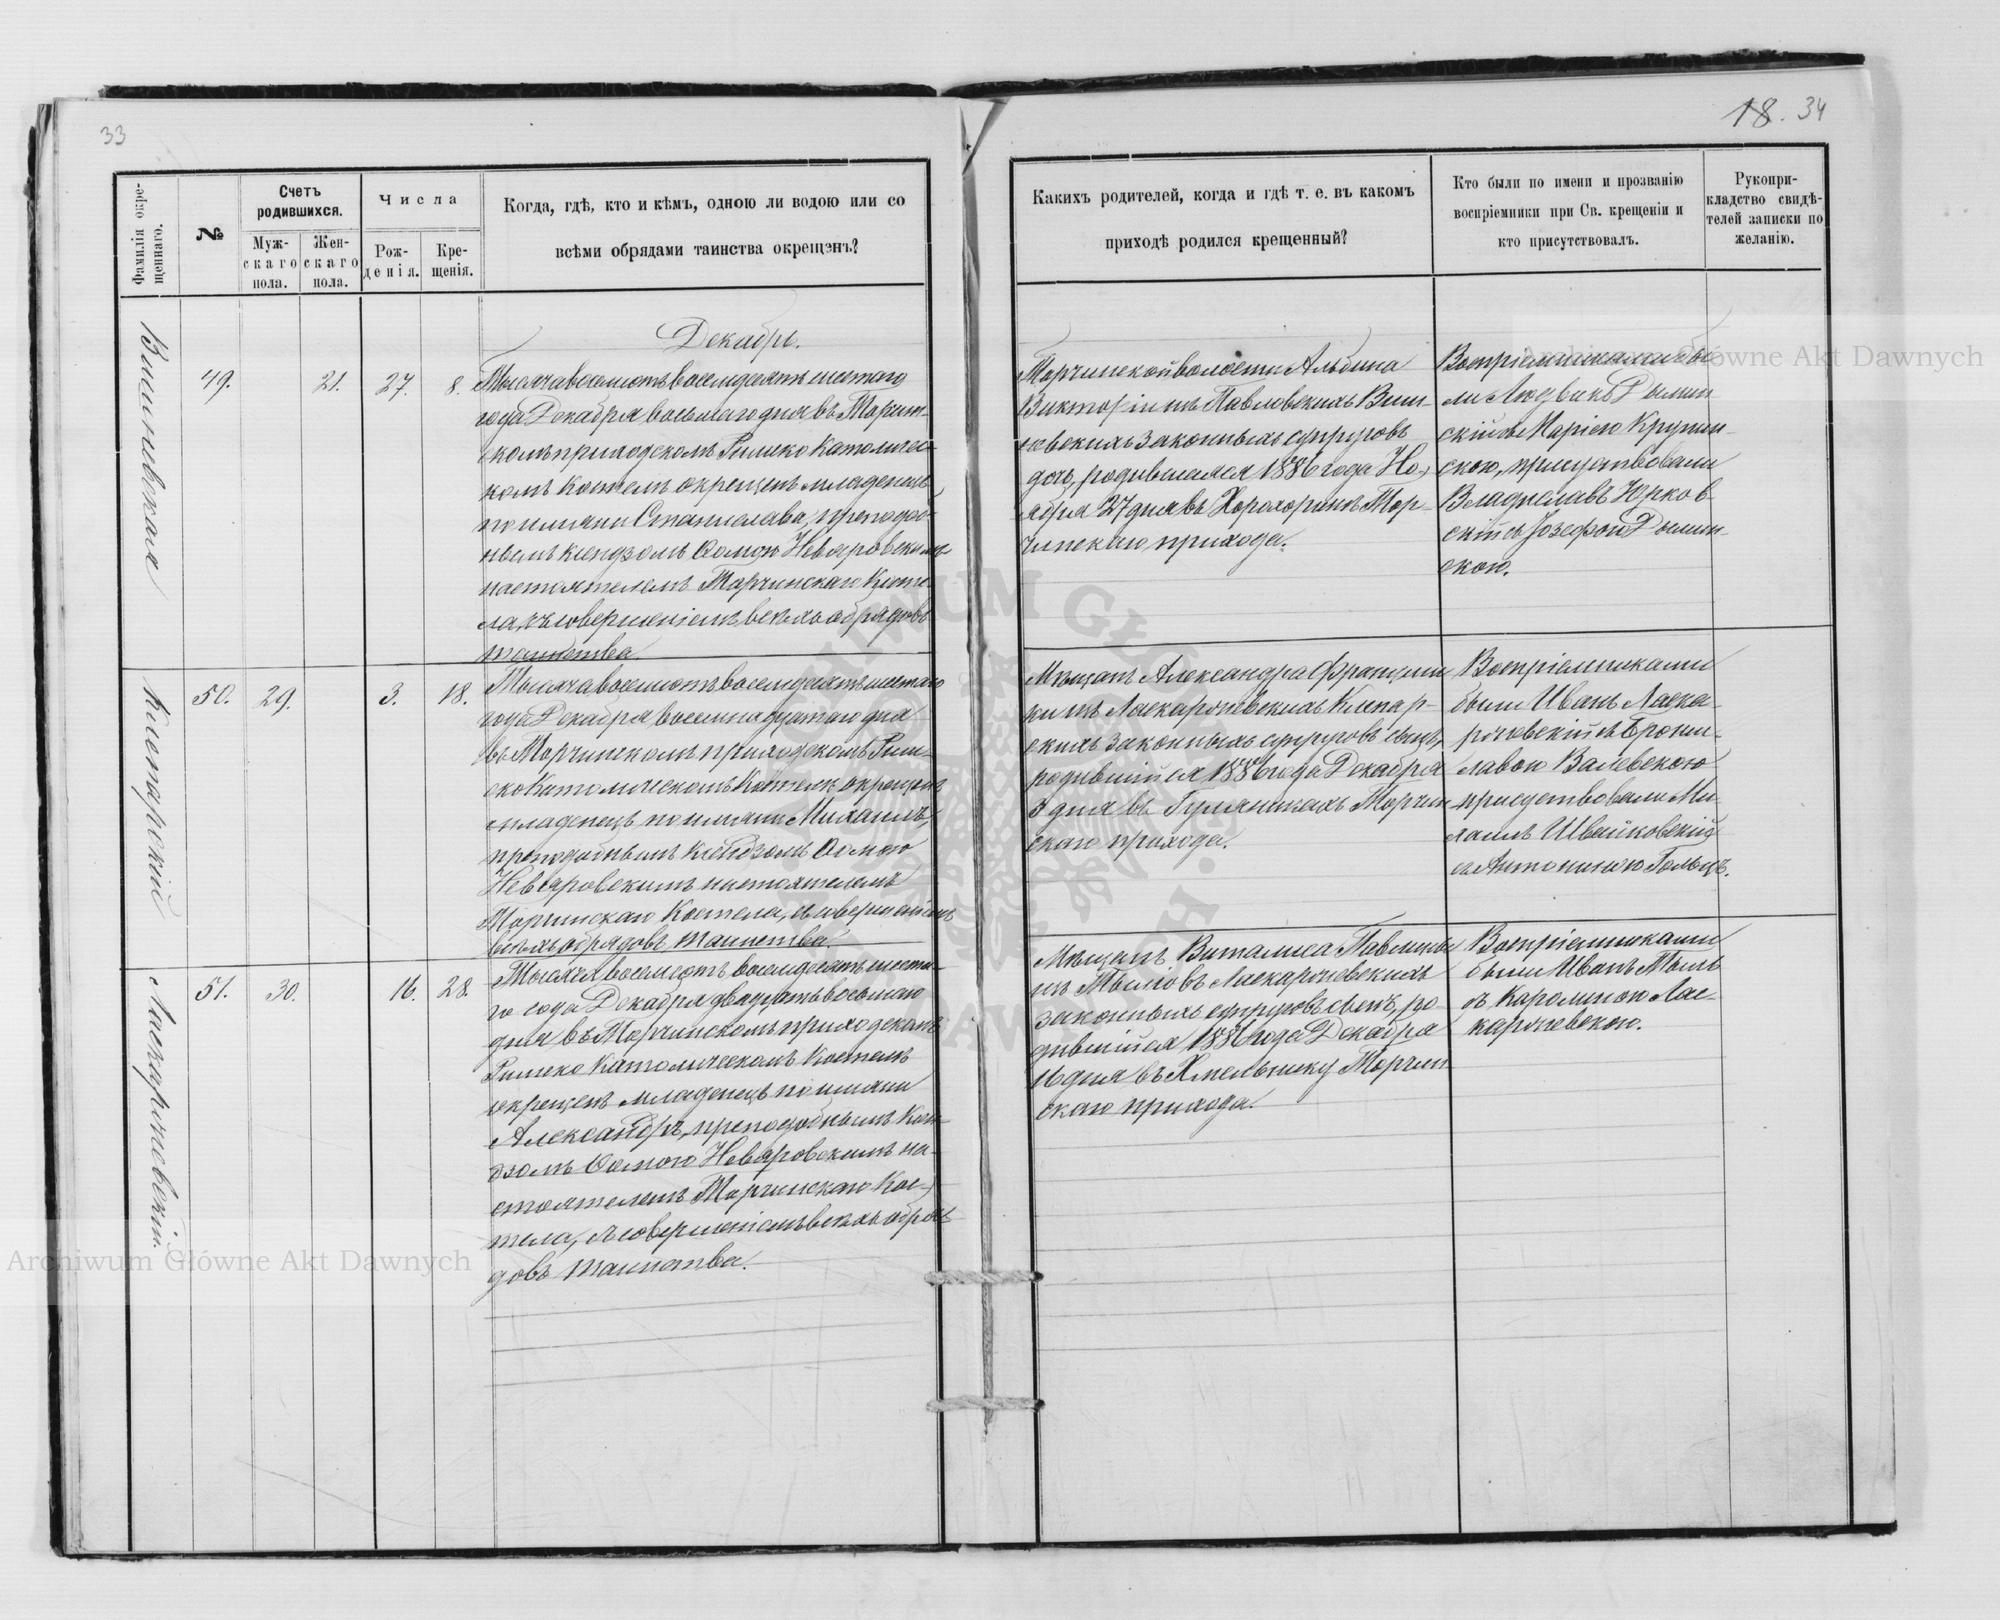 33
18. 34
Фамилія окре-
щеннаго.
№
Счетъ
родившихся.
Муж-
скаго
пола.
Жен-
скаго
пола.
Числа
Рож-
денія.
Кре-
щенія.
Когда, гдѣ, кто и кѣмъ, одною ли водою или со
всѣми обрядами таинства окрещэнъ?
Какихъ родителей, когда и гдѣ т. е. въ какомъ
приходѣ родился крещенный?
Кто были по имени и прозванію
воспріемники при Св. крещеніи и
кто присутствовалъ.
Рукопри-
кладство свидѣ-
телей записки по
желанію.
Декабрь.
49.
21.
27.
8.
Тысяча восемьсотъ восемьдесятъ шестаго
года Декабря восьмаго дня въ Торчин-
скомъ приходскомъ Римско Католичес-
комъ Костелѣ окрещенъ младенецъ
по имени Станислава, преподоб-
нымъ Ксендзомъ Ѳомою Невяровскимъ
настоятелемъ Торчинскаго Косте-
ла, съ совершеніемъ всѣхъ обрядовъ
таинства.
Торчинской волости Альбина
Викторіи изъ Павловскихъ Виш-
невскихъ законныхъ супруговъ
дочь, родившаяся 1886 года Но-
ября 27 дня въ Хорохоринѣ Тор-
чинскаго прихода.
Воспріемниками бы-
ли Людвикъ
скій съ Маріею Крупин-
скою, присутствовали
Владиславъ Юрков-
скій съ Іозефою
скою.
Кліопарскій
50.
29.
3.
18.
Тысяча восемьсотъ восемьдесятъ шестаго
года Декабря восемнадцатаго дня
въ Торчинскомъ приходскомъ Рим-
ско Католическомъ Костелѣ окрещенъ
младенецъ по имени Михаилъ,
преподобнымъ Ксендзомъ Ѳомою
Невяровскимъ настоятелемъ
Торчинскаго Костела, съ совершеніемъ
всѣхъ обрядовъ таинства.
Мѣщанъ Александра Францишки
изъ Ласкарочевскихъ
законныхъ супруговъ сынъ,
родившійся 1886 года Декабря
3 дня въ Торчин-
скаго прихода.
Воспріемниками
были Иванъ Ласка-
рочевскій съ Брони-
славою Валевскою
присутствовали Ми-
хаилъ Швейковскій
съ Антониною
Ласкарочевскій.
51.
30.
16.
28.
Тысяча восемьсотъ восемьдесятъ шеста-
го года Декабря двадцать восьмаго
дня въ Торчинскомъ приходскомъ
Римско Католическомъ Костелѣ
окрещенъ младенецъ по имени
Александръ, преподобнымъ Ксен-
дзомъ Ѳомою Невяровскимъ на-
стоятелемъ Торчинскаго Кос-
тела, съ совершеніемъ всѣхъ обря-
довъ таинства.
Мѣщанъ Виталиса
изъ Ласкарочевскихъ
законныхъ супруговъ сынъ, ро-
дившійся 1886 года Декабря
16 дня въ Хмельнику Торчин-
скаго прихода.
Воспріемниками
были Иванъ
съ Каролиною Лас-
карочевскою.
Archiwum Główne Akt Dawnych
Archiwum Główne Akt Dawnych